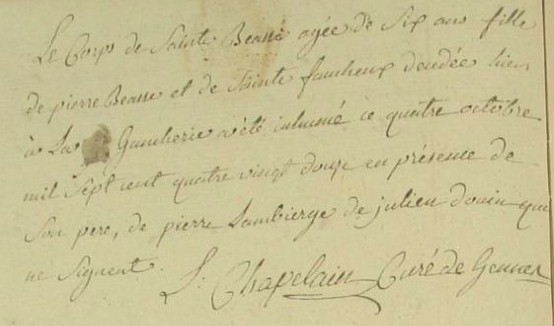 Le Corps de Sainte Beasse agée de Six ans fille
de pierre Beasse et de Sainte faucheux décédée hier
à La Gaucherie a été inhumé ce quatre octobre
mil Sept cent quatre vingt douze en présence de
Son pere, de pierre Lambierge de julien douin qui
ne Signent.
L: Chapelain Curé de Gennes